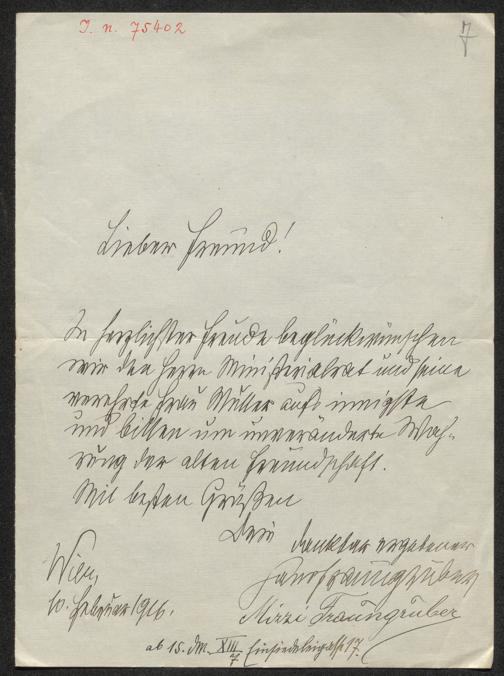 I. n. 75402
Lieber Freund!
In herzlichster Freude beglückwünschen
wir den Herrn Ministerialrat und seine
verehrte Frau Mutter aufs innigste
und bitten um unveränderte Wah-
rung der alten Freundschaft.
Mit besten Grüßen
Dein dankbar ergebener
Hans Fraungruber
Mizzi Fraungruber
Wien,
10. Februar 1916.
ab 15. dM. XIII/7. Einsiedeleigasse 17.